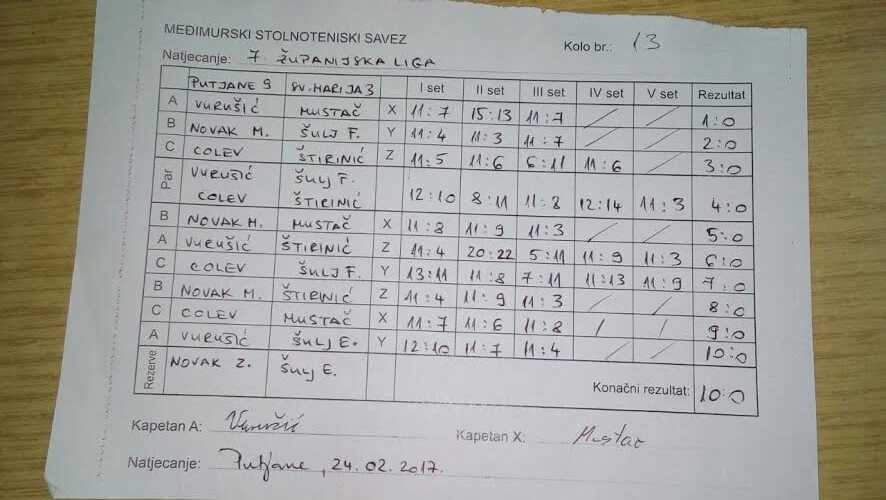 MEĐIMURSKI STOLNOTENISKI SAVEZ
Kolo br.: 13
Natjecanje: 7. ŽUPANIJSKA LIGA
PUTJANE 9 SV. MARIJA 3 I set II set III set IV set V set Rezultat
A VURUŠIĆ MUSTAČ X 11:7 15:13 11:7 / / 1:0
B NOVAK M. ŠULJ F. Y 11:4 11:3 11:7 / / 2:0
C COLEV ŠTIRINIĆ Z 11:5 11:6 6:11 11:6 / 3:0
Par VURUŠIĆ ŠULJ F.
COLEV ŠTIRINIĆ 12:10 8:11 11:8 12:14 11:3 4:0
B NOVAK M. MUSTAČ X 11:8 11:9 11:3 / / 5:0
A VURUŠIĆ ŠTIRINIĆ Z 11:4 20:22 5:11 11:9 11:3 6:0
C COLEV ŠULJ F. Y 13:11 11:8 7:11 11:13 11:9 7:0
B NOVAK M. ŠTIRINIĆ Z 11:4 11:9 11:3 / / 8:0
C COLEV MUSTAČ X 11:7 11:6 11:8 / / 9:0
A VURUŠIĆ ŠULJ E. Y 12:10 11:7 11:4 / / 10:0
Rezerve NOVAK Z. ŠULJ E. Konačni rezultat: 10:0
Kapetan A: Vurušić Kapetan X: Mustač
Natjecanje: Putjane, 24.02.2017.